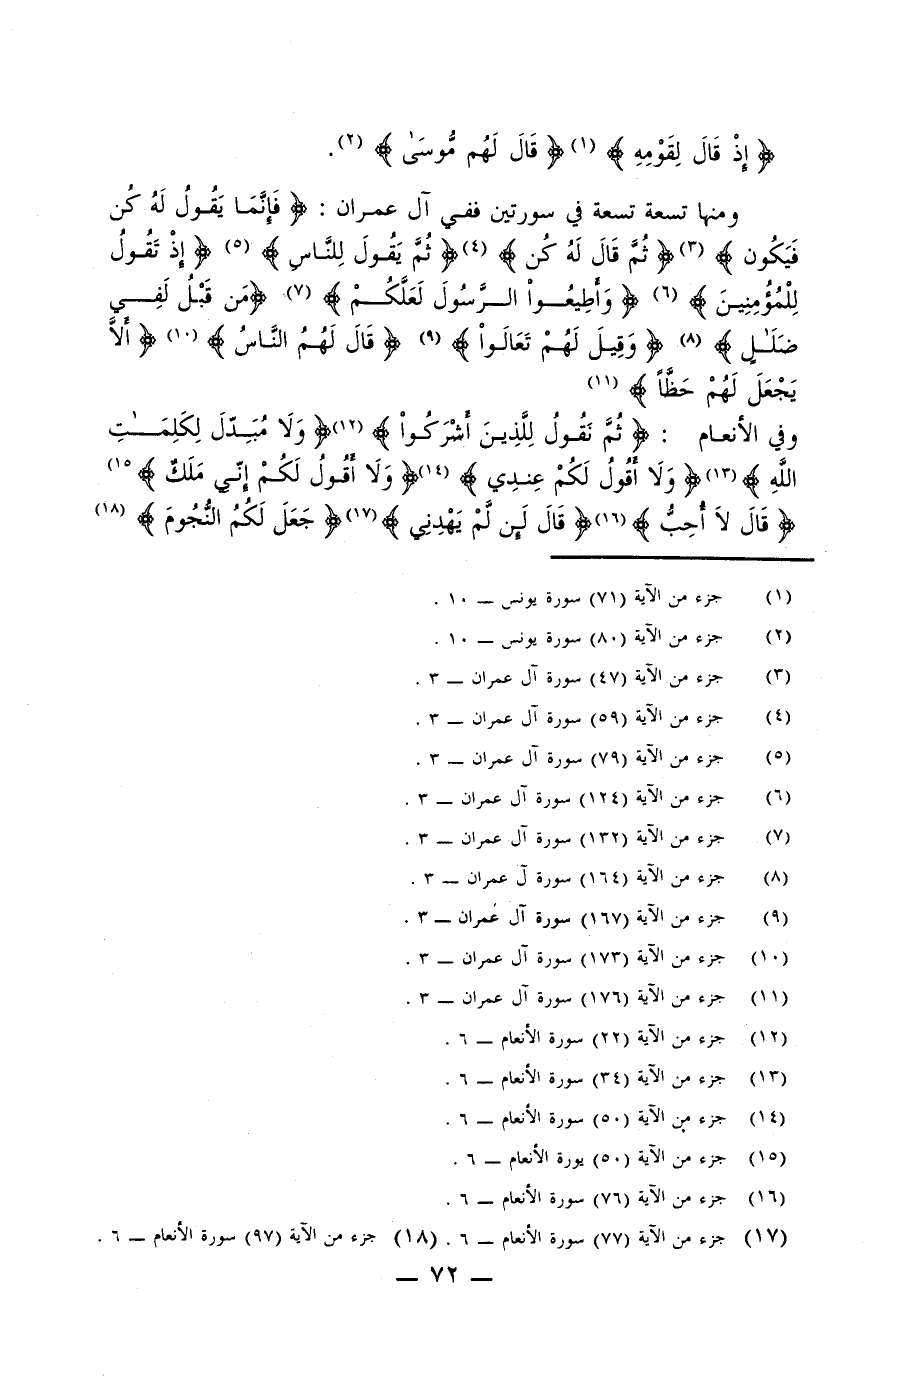 ﴿ إِذْ قَالَ لِقَوْمِهِ ﴾ (١) ﴿ قَالَ لَهُم مُّوسَىٰ ﴾ (٢).
ومنها تسعة تسعة في سورتين ففي آل عمران : ﴿ فَإِنَّمَا يَقُولُ لَهُ كُن
فَيَكُون ﴾ (٣) ﴿ ثُمَّ قَالَ لَهُ كُن ﴾ (٤) ﴿ ثُمَّ يَقُولَ لِلنَّاسِ ﴾ (٥) ﴿ إِذْ تَقُولُ
لِلْمُؤْمِنِينَ ﴾ (٦) ﴿ وَأَطِيعُواْ الرَّسُولَ لَعَلَّكُمْ ﴾ (٧) ﴿مَن قَبْلُ لَفِي
ضَلَٰلٍ ﴾ (٨) ﴿ وَقِيلَ لَهُمْ تَعَالَواْ ﴾ (٩) ﴿ قَالَ لَهُمُ النَّاسُ ﴾ (١٠) ﴿ أَلاَّ
يَجْعَلَ لَهُمْ حَظَّاً ﴾ (١١)
وفي الأنعام : ﴿ ثُمَّ نَقُولُ لِلَّذِينَ أَشْرَكُواْ ﴾ (١٢) ﴿ وَلَا مُبَدِّلَ لِكَلِمَٰتِ
اللَّهِ ﴾ (١٣) ﴿ وَلَا أَقُولُ لَكُمْ عِندِي ﴾ (١٤) ﴿ وَلَا أَقُولُ لَكُمْ إِنِّي مَلَكٌ ﴾ (١٥
﴿ قَالَ لاَ أُحِبُّ ﴾ (١٦) ﴿ قَالَ لَئِن لَّمْ يَهْدِنِي ﴾ (١٧) ﴿ جَعَلَ لَكُمُ النُّجُومَ ﴾ (١٨)
(١) جزء من الآية (٧١) سورة يونس ــ ١٠ .
(٢) جزء من الآية (٨٠) سورة يونس ــ ١٠ .
(٣) جزء من الآية (٤٧) سورة آل عمران ــ ٣ .
(٤) جزء من الآية (٥٩) سورة آل عمران ــ ٣ .
(٥) جزء من الآية (٧٩) سورة آل عمران ــ ٣ .
(٦) جزء من الآية (١٢٤) سورة آل عمران ــ ٣ .
(٧) جزء من الآية (١٣٢) سورة آل عمران ــ ٣ .
(٨) جزء من الآية (١٦٤) سورة لَ عمران ــ ٣ .
(٩) جزء من الآية (١٦٧) سورة آل عمران ــ ٣ .
(١٠) جزء من الآية (١٧٣) سورة آل عمران ــ ٣ .
(١١) جزء من الآية (١٧٦) سورة آل عمران ــ ٣ .
(١٢) جزء من الآية (٢٢) سورة الأنعام ــ ٦ .
(١٣) جزء من الآية (٣٤) سورة الأنعام ــ ٦ .
(١٤) جزء من الآية (٥٠) سورة الأنعام ــ ٦ .
(١٥) جزء من الآية (٥٠) يورة الأنعام ــ ٦ .
(١٦) جزء من الآية (٧٦) سورة الأنعام ــ ٦ .
(١٧) جزء من الآية (٧٧) سورة الأنعام ــ ٦ . (١٨) جزء من الآية (٩٧) سورة الأنعام ــ ٦ .
ــ ٧٢ ــ